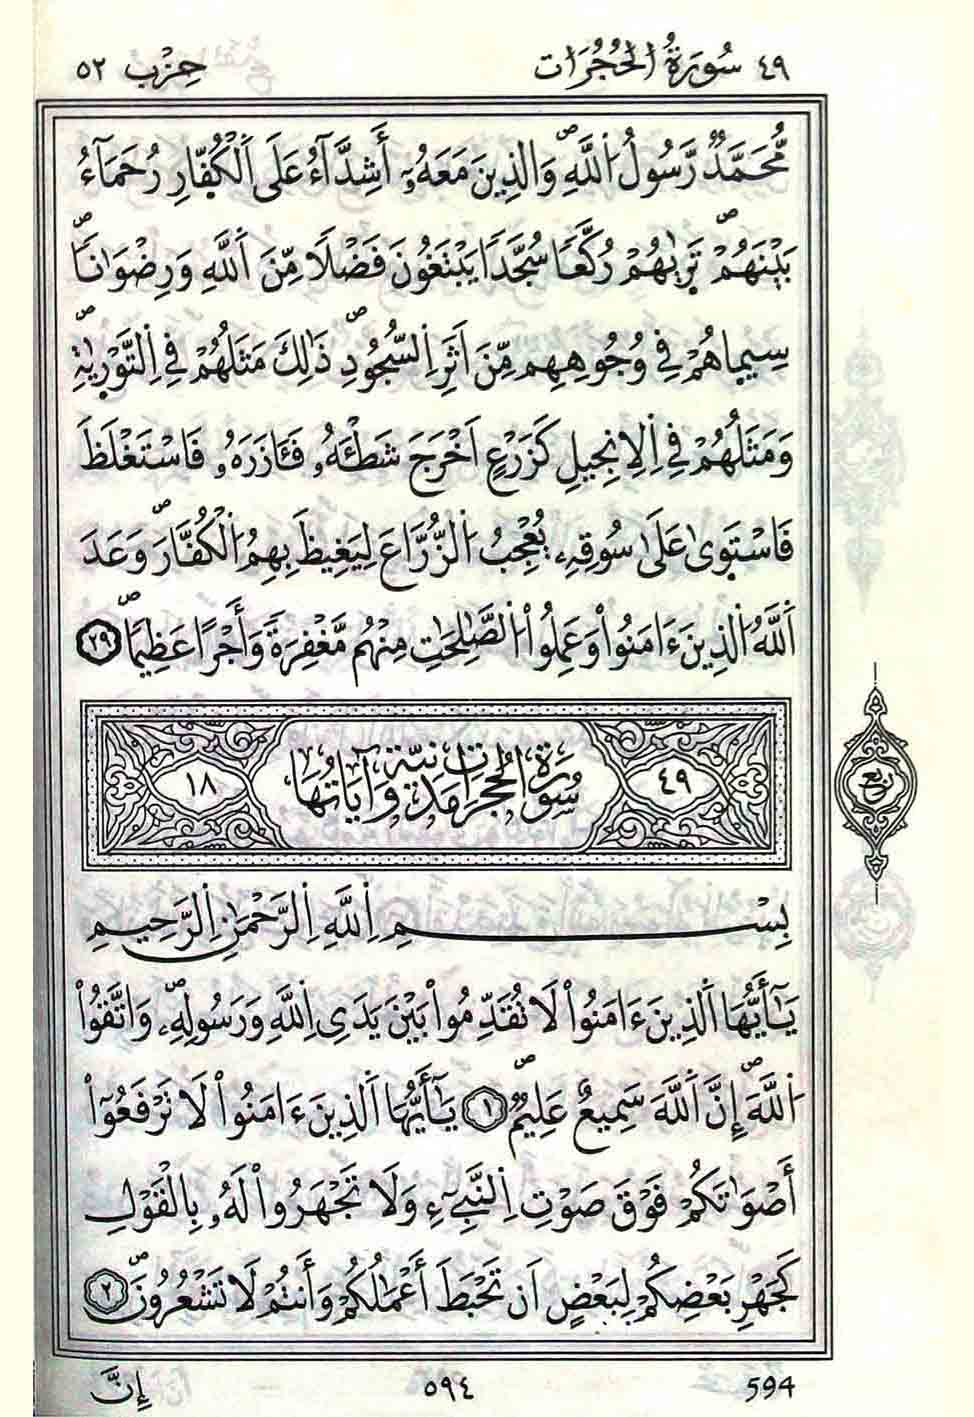 ٤٩ سُورَةُ اُلْحُجُرَاتِ حِزْب ٥٢
مُّحَمَّدٞ رَّسُولُ اُ۬للَّهِۖ وَالذِينَ مَعَهُۥٓ أَشِدَّآءُ عَلَى اَ۬لْكُفّ۪ارِ رُحَمَآءُ
بَيْنَهُمْۖ تَر۪يٰهُمْ رُكَّعاٗ سُجَّداٗ يَبْتَغُونَ فَضْلاٗ مِّنَ اَ۬للَّهِ وَرِضْوَٰناٗۖ
سِيم۪اهُمْ فِے وُجُوهِهِم مِّنَ اَثَرِ اِ۬لسُّجُودِۖ ذَٰلِكَ مَثَلُهُمْ فِے اِ۬لتَّوْر۪يٰةِۖ
وَمَثَلُهُمْ فِے اِ۬لِانجِيلِ كَزَرْعٍ اَخْرَجَ شَطْـَٔهُۥ فَـَٔازَرَهُۥ فَاسْتَغْلَظَ
فَاسْتَو۪يٰ عَلَىٰ سُوقِهِۦ يُعْجِبُ اُ۬لزُّرَّاعَ لِيَغِيظَ بِهِمُ اُ۬لْكُفَّارَۖ وَعَدَ
اَ۬للَّهُ اُ۬لذِينَ ءَامَنُواْ وَعَمِلُواْ اُ۬لصَّٰلِحَٰتِ مِنْهُم مَّغْفِرَةٗ وَأَجْراً عَظِيماٗۖ ٢٩
٤٩ سُورَةُ الْحُجُرَاتِ مَدَنِيَّةٌ وَآيَاتُهَا ١٨
بِسْمِ اِ۬للَّهِ اِ۬لرَّحْمَٰنِ اِ۬لرَّحِيمِ
يَٰٓأَيُّهَا اَ۬لذِينَ ءَامَنُواْ لَا تُقَدِّمُواْ بَيْنَ يَدَيِ اِ۬للَّهِ وَرَسُولِهِۦۖ وَاتَّقُواْ
اُ۬للَّهَۖ إِنَّ اَ۬للَّهَ سَمِيعٌ عَلِيمٞۖ ١ يَٰٓأَيُّهَا اَ۬لذِينَ ءَامَنُواْ لَا تَرْفَعُوٓاْ
أَصْوَٰتَكُمْ فَوْقَ صَوْتِ اِ۬لنَّبِےٓءِ وَلَا تَجْهَرُواْ لَهُۥ بِالْقَوْلِ
كَجَهْرِ بَعْضِكُمْ لِبَعْضٍ اَن تَحْبَطَ أَعْمَٰلُكُمْ وَأَنتُمْ لَا تَشْعُرُونَۖ ٢
ربع
إِنَّ ٥٩٤ 594